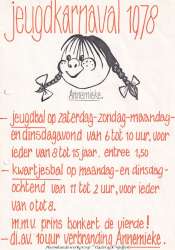 jeugdkarnaval 1978
Annemieke.
- jeugdbal op zaterdag-zondag-maandag-
en dinsdagavond van 6 tot 10 uur, voor
ieder van 8 tot 15 jaar. entree 1,50
- kwartjesbal op maandag- en dinsdag-
ochtend van 11 tot 2 uur, voor ieder
van 0 tot 8.
m.m.v. prins bonkert de vierde!
- di.av. 10 uur verbranding Annemieke.